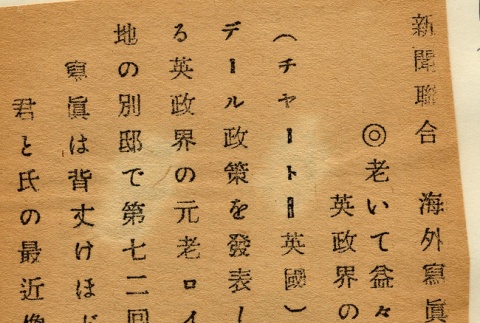 新聞聯合　海外寫眞
◎老いて益々
英政界の
（チャートー英國）
デール政策を發表し
る英政界の元老ロイ
地の別邸で第七二回
寫眞は背丈けほど
君と氏の最近像